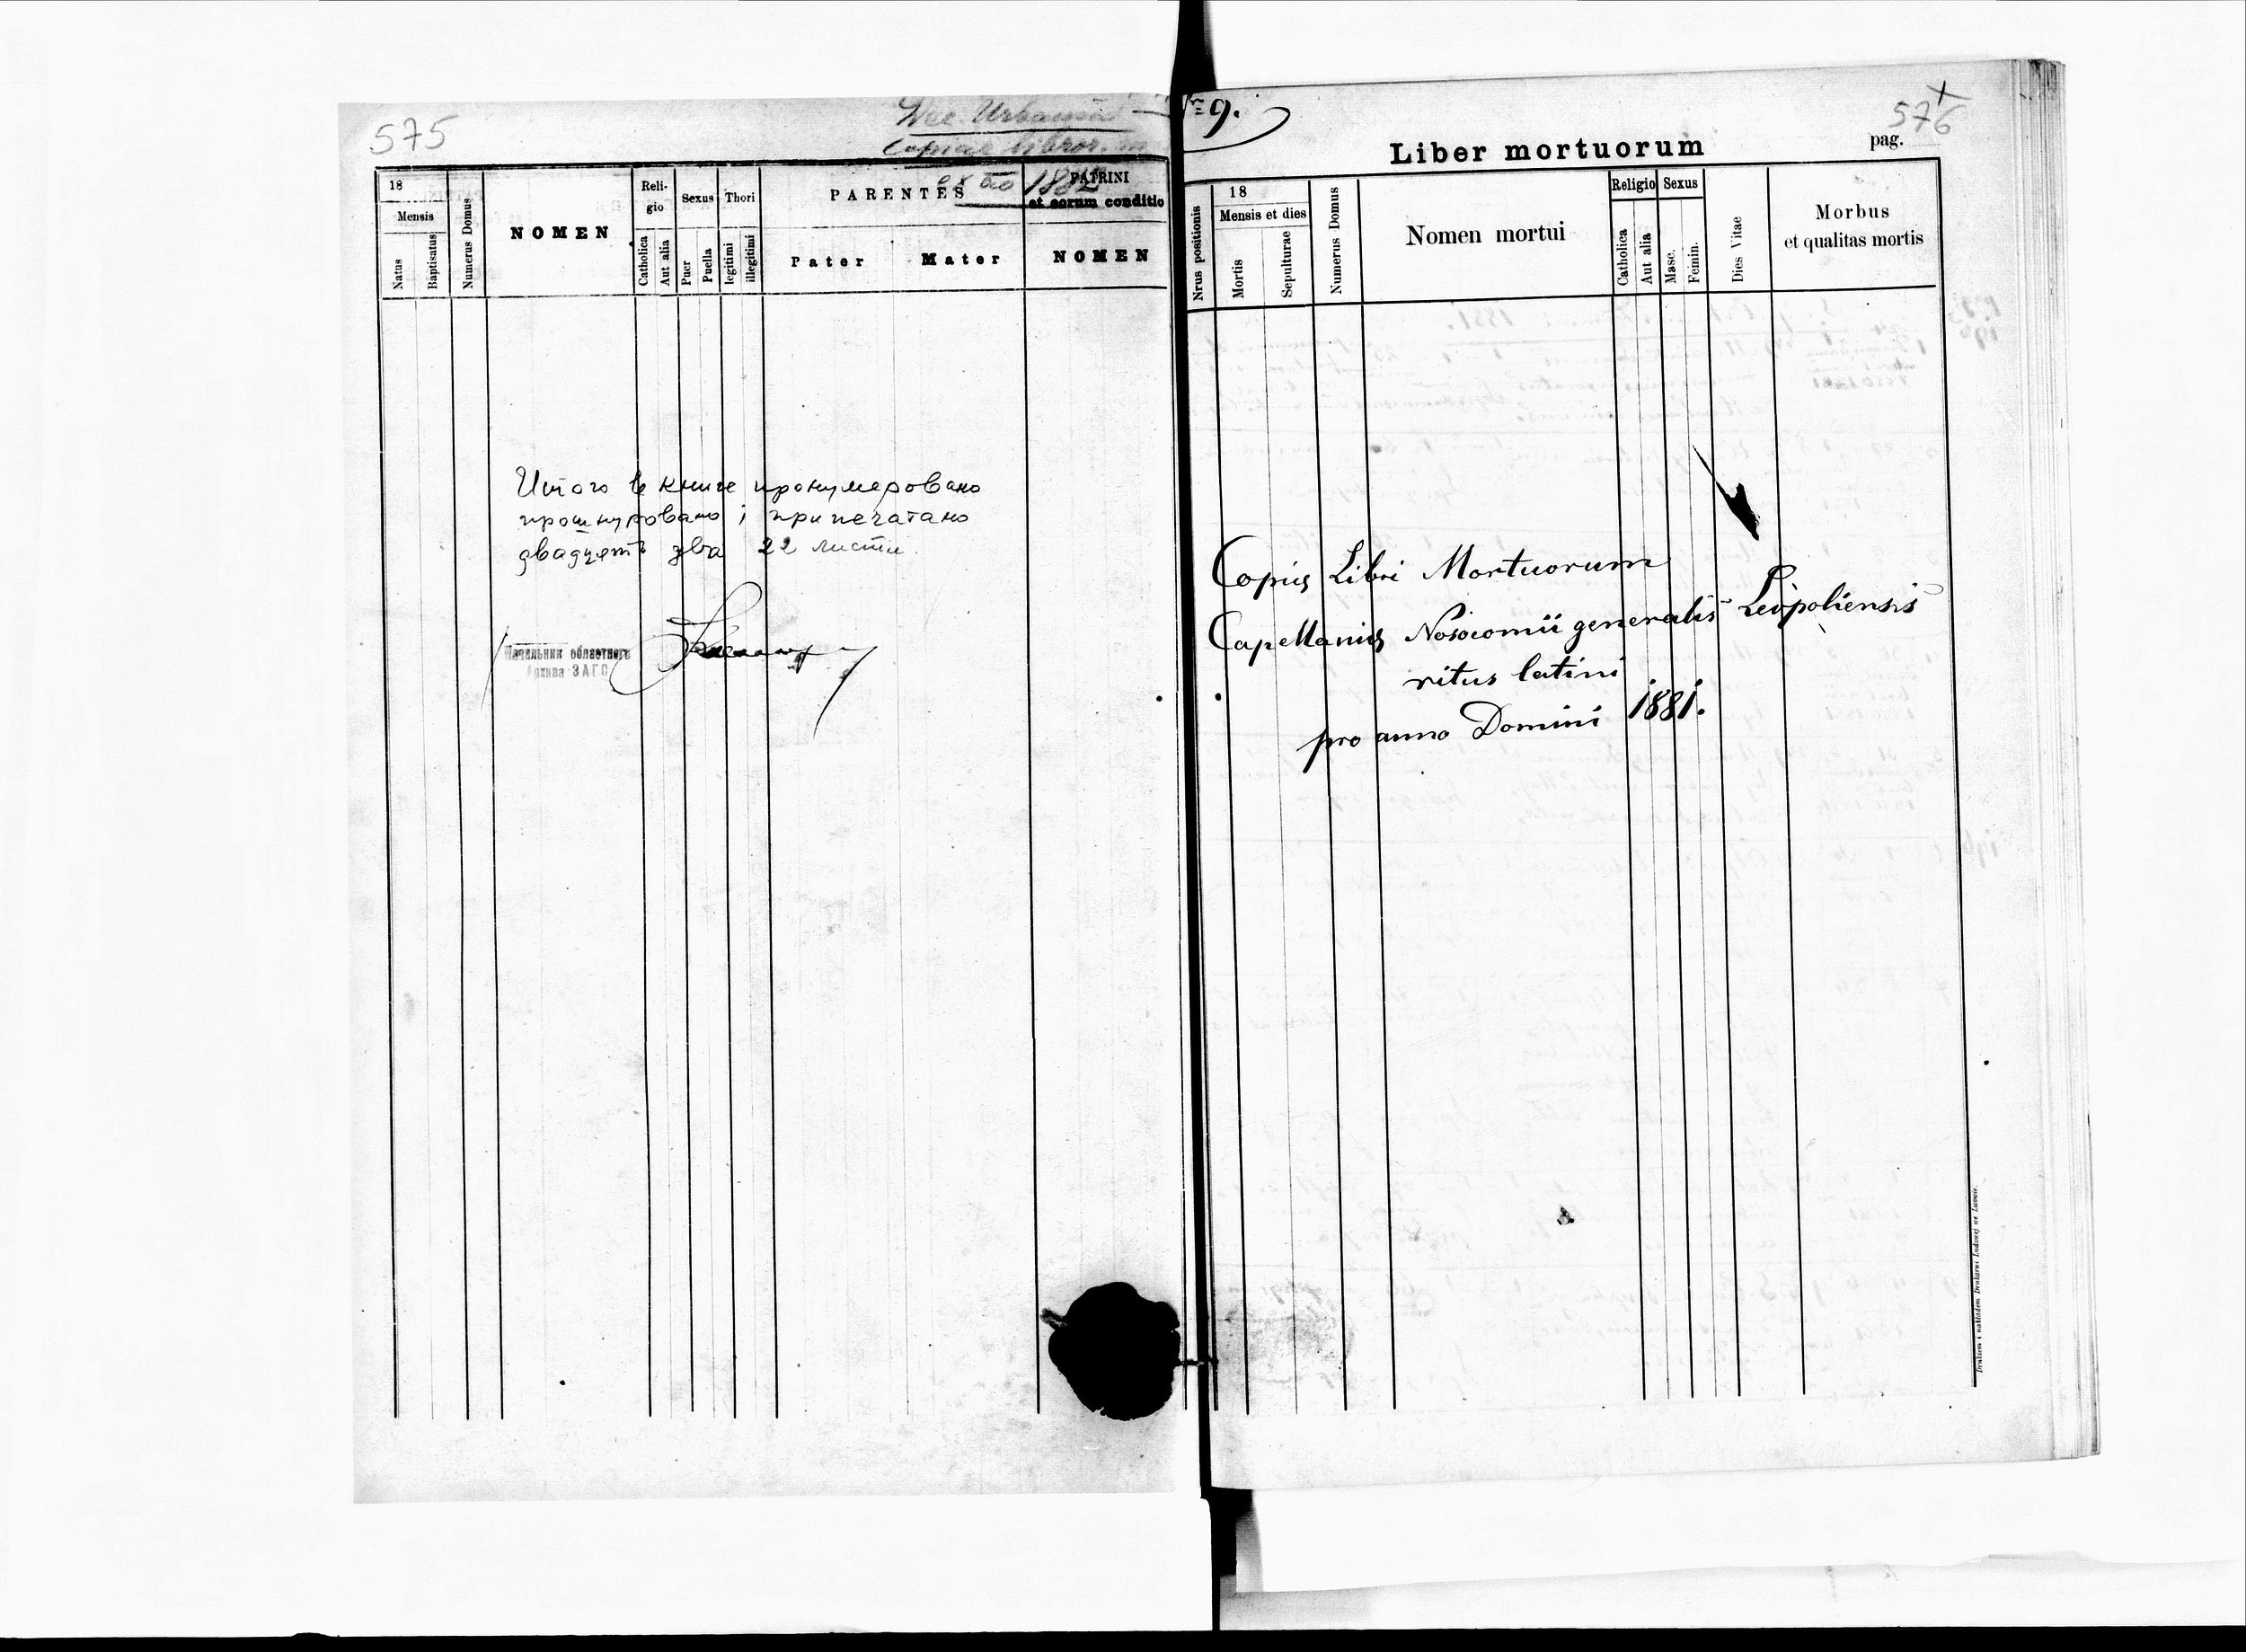 575
Dec. Urbanus
Copiae librorum
ex ao 1882
18
Mensis
Natus
Baptisatus
Numerus Domus
NOMEN
Religio
Catholica
Aut alia
Sexus
Puer
Puella
Thori
legitimi
illegitimi
PARENTES
Pater
Mater
PATRINI
et eorum conditio
NOMEN
Итого в книге пронумеровано
прошнуровано і припечатано
двадцять два 22 листи
Начальник областного
Архива ЗАГС
9.
576
Liber mortuorum
pag.
Nrus positionis
18
Mensis et dies
Mortis
Sepulturae
Numerus Domus
Nomen mortui
Religio
Catholica
Aut alia
Sexus
Masc.
Femin.
Dies Vitae
Morbus
et qualitas mortis
Copia Libri Mortuorum
Capellaniae Nosocomii generalis Leopoliensis
ritus latini
pro anno Domini 1881.
Drukiem i nakładem Drukarni Ludowej we Lwowie.